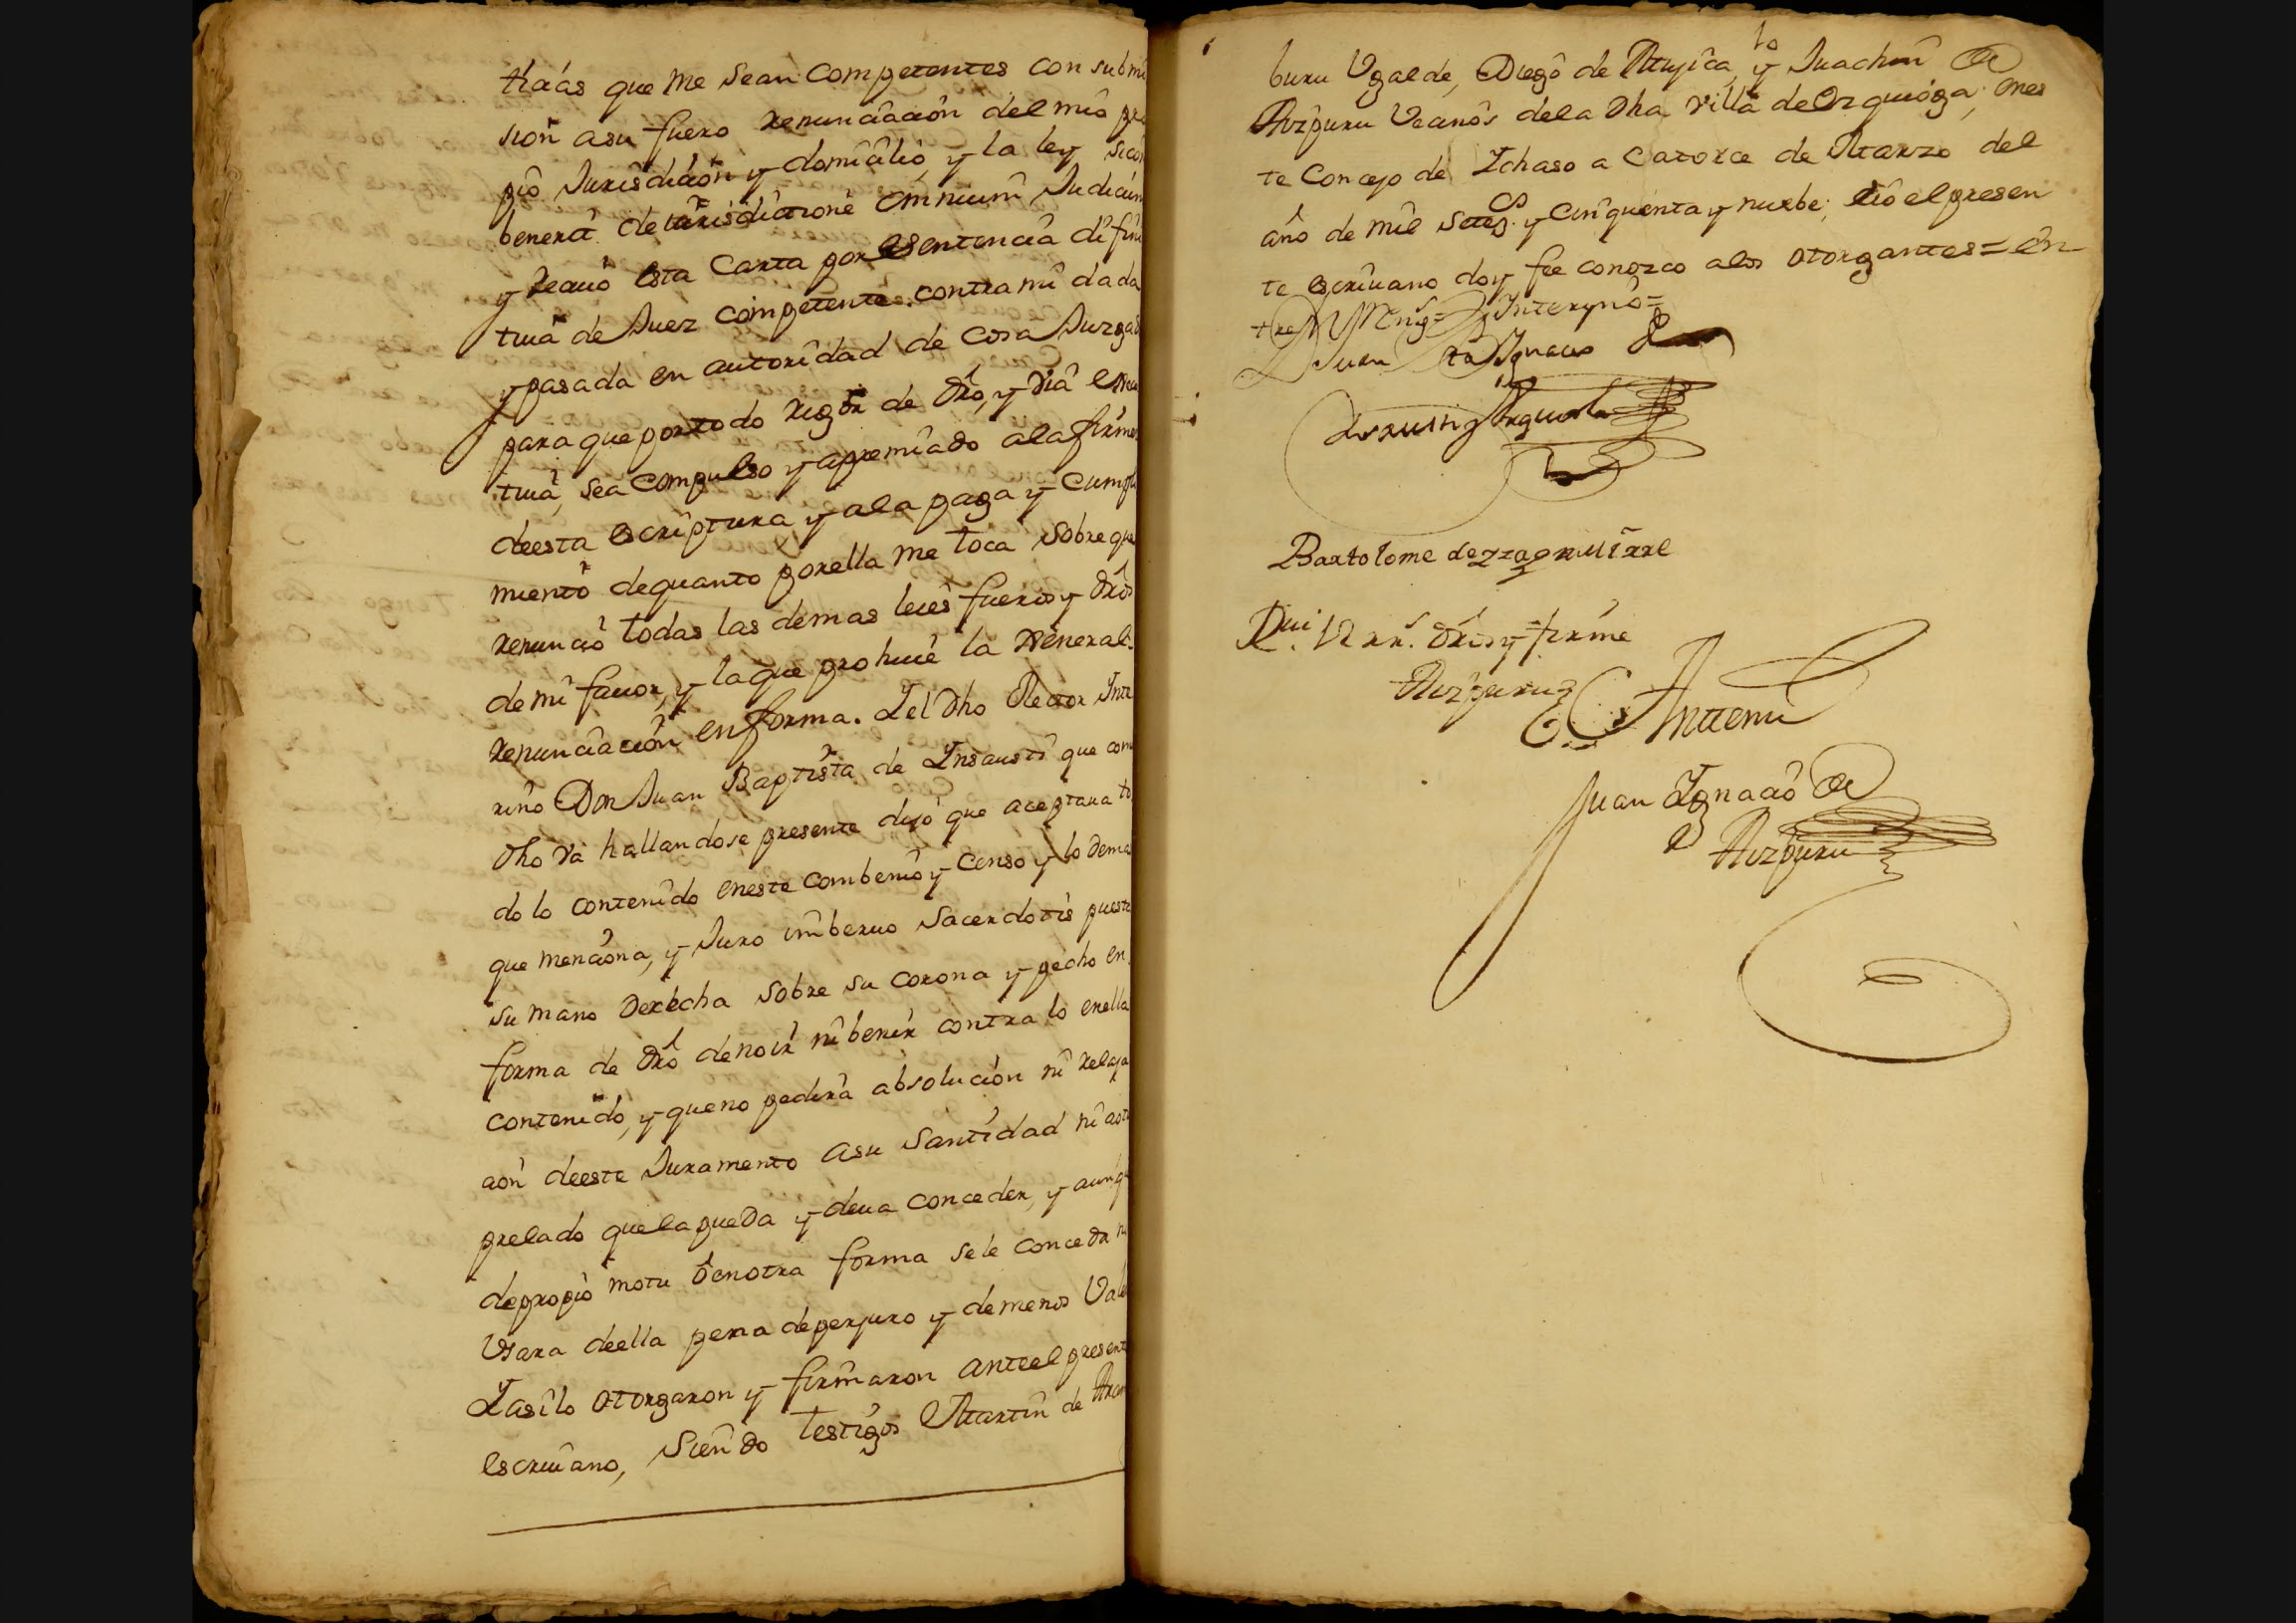 ticias que me sean competentes con submi
sion asu fuero renunciacion del mio pro
pio Jurisdicion y domicilio, y la ley sicon
benerit de Jurisdictione omnium Judicun
y recivo esta Carta por sentencia difini
tiva de Juez competente contra mi dada
y pasada en autoridad de cosa Juzgad
para que portodo rigor de dro, y via execu
tiva, sea compulso y apremiado ala firmeza
deesta escriptura y ala paga y cumpli
miento dequanto porella me toca sobre que
renuncio todas las demas leies fueros y dros
de mi favor, y laque prohive la General
renunciacion enforma. Iel dho Rector Inte
rino Don Juan Baptista de Insausti que como
dho va hallandose presente dijo que aceptava to
do lo contenido eneste combenio y censo y lo demas
que menciona, y Juro imberuo Sacerdotis puesta
su mano Derecha sobre su corona y pecho en
forma de dro denoir ni benir contra lo enella
contenido, y queno pedira absolucion ni relaja
cion deeste Juramento asu Santidad ni aotro
prelado quela pueda y deva conceder, y aunq
depropio motu o enotra forma sele conceda no
Usara deella pena deperjuro y demenos Valer
Iasilo otorgaron y firmaron anteel presente
escrivano, siendo testigos Martin de Aram
buru Ugalde, Diego de Mujica, y Juachin de
Aizpuru Vecinos dela dha villa de Ezquioga, en es
te Concejo de Ichaso a Catorce de Marzo del
año de mil setezs. y cinquenta y nuebe; eio el presen
te escrivano doy fee conozco alos otorgantes = en
tre Rens = Interyno =
Juan Bta Ignacio de
Insausti Arguiola
Bartolome deyzaguirre
Rui 12 rr. dros y firme
Aizpuru
Anttemi
Juan Ignacio de
Aizpuru